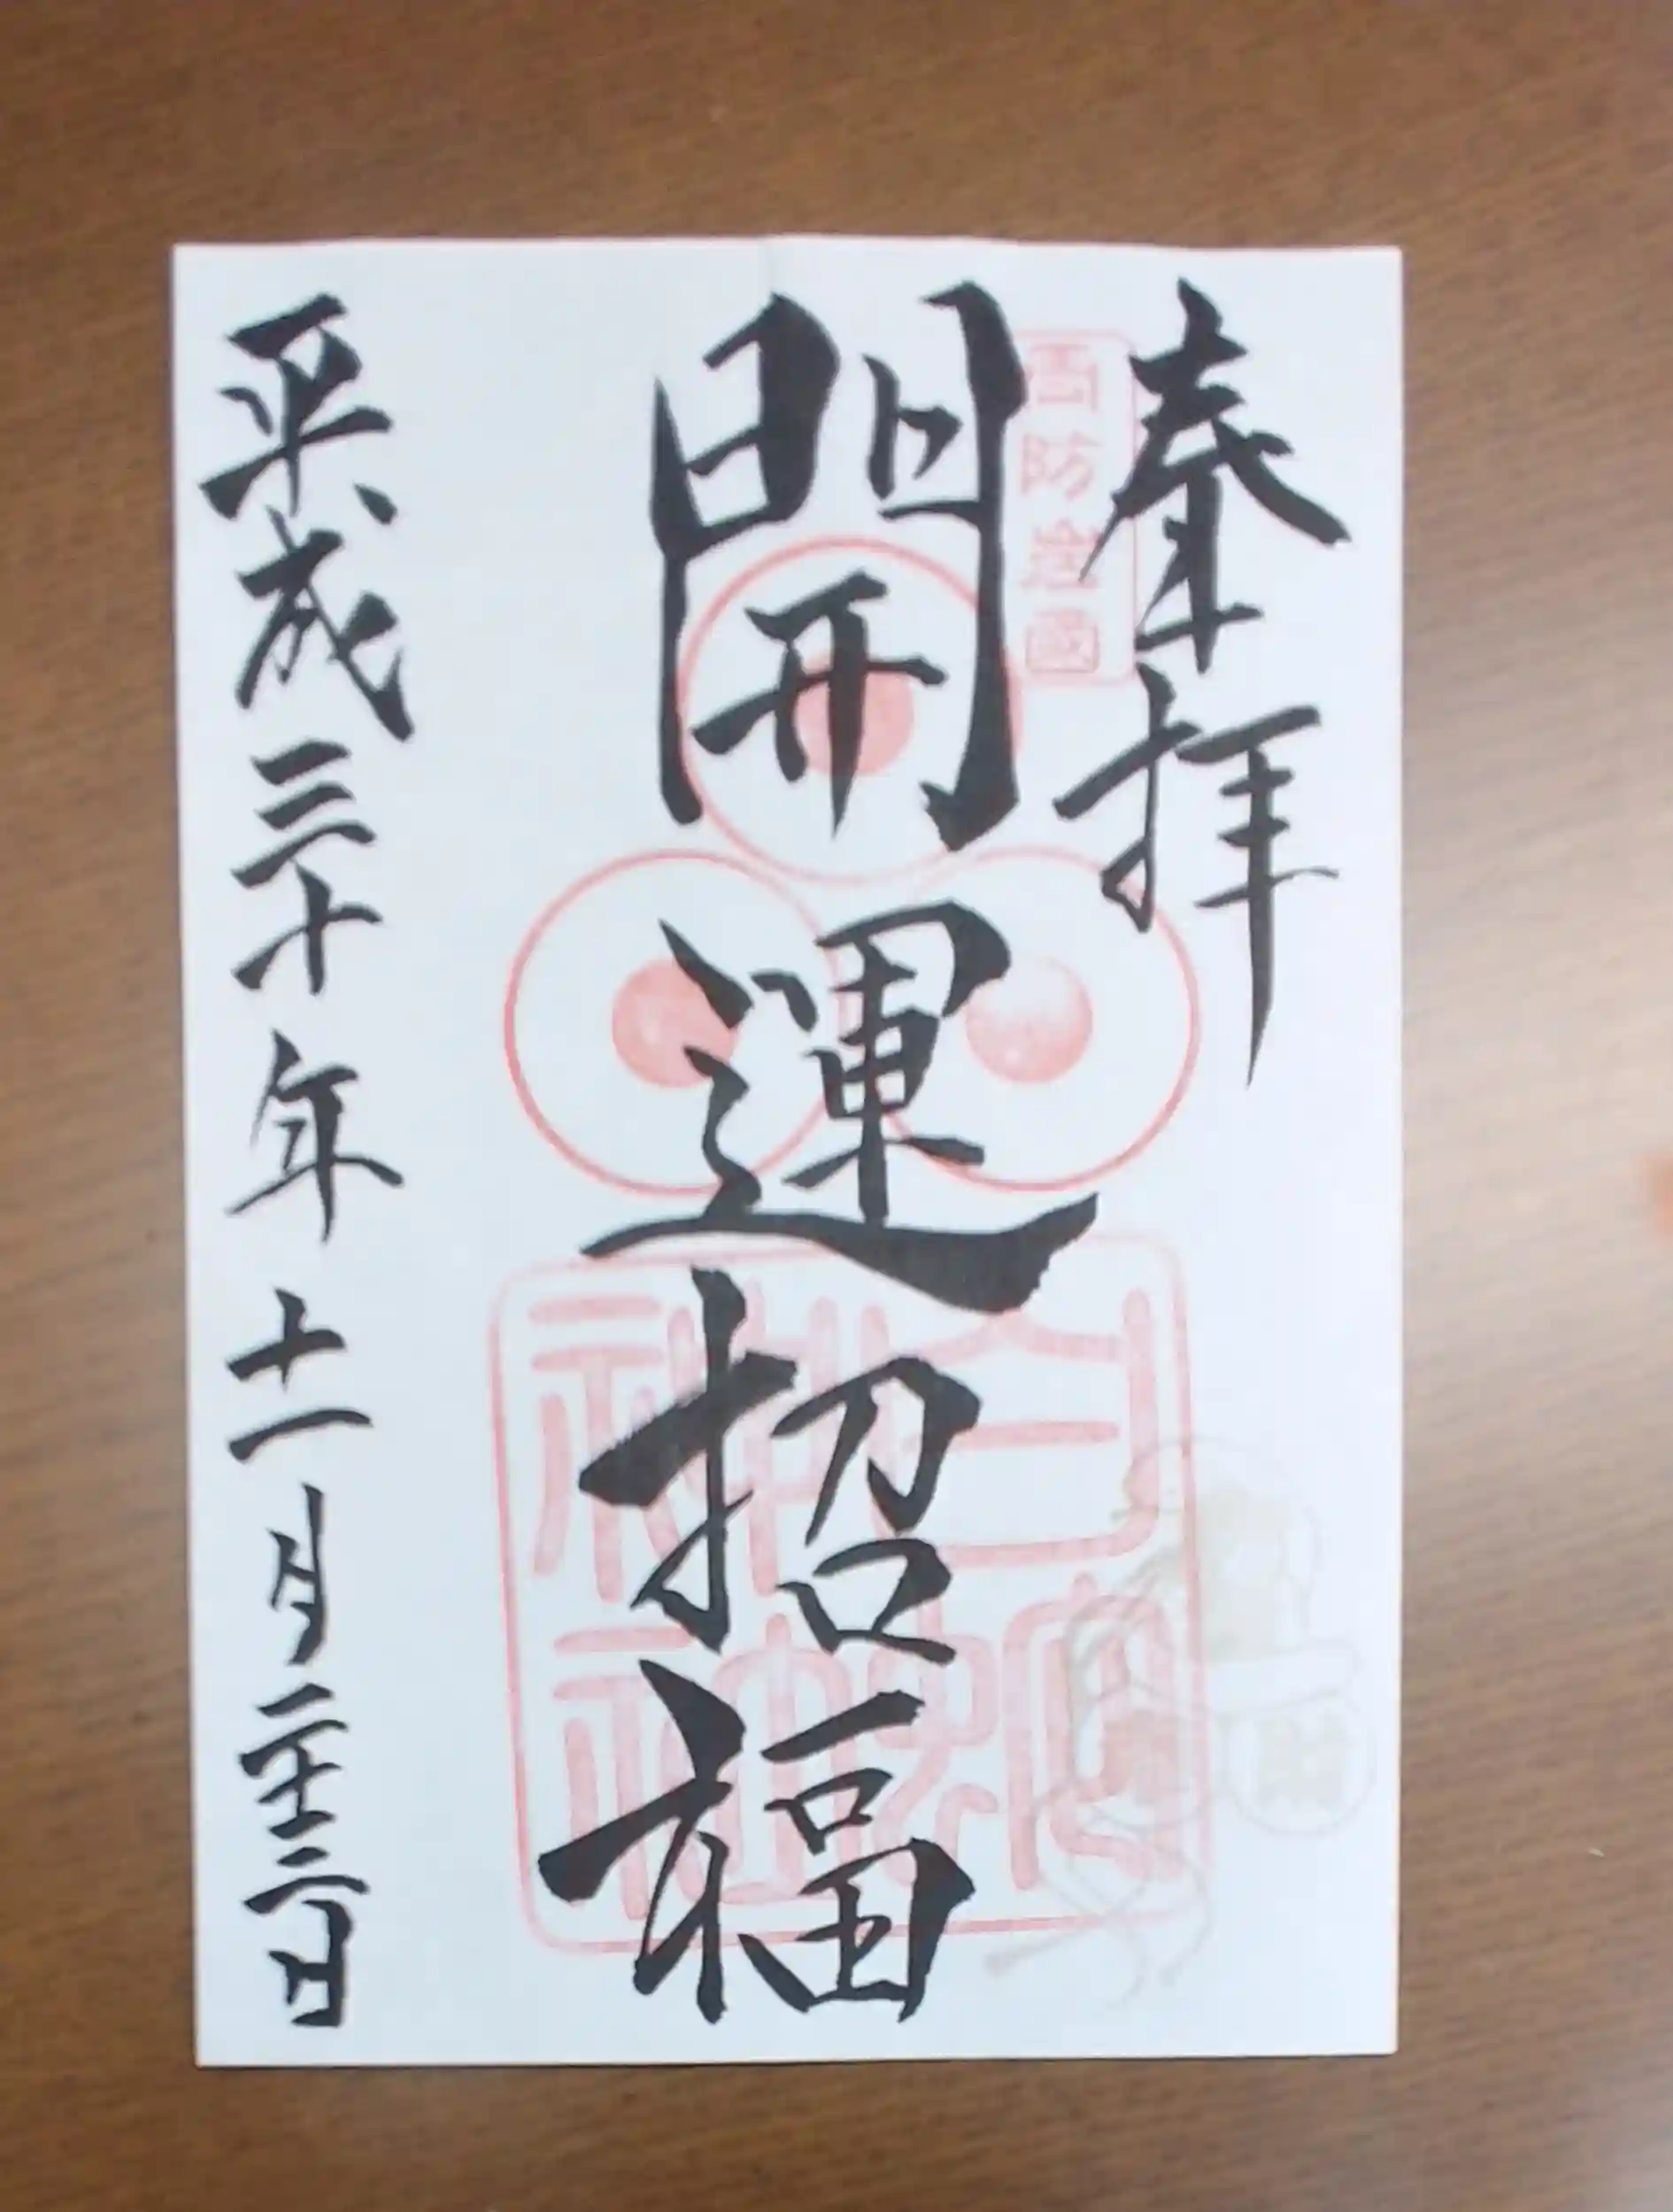 奉拝
周防岩國
開運招福
白蛇神社
財
平成三十年十一月二十三日